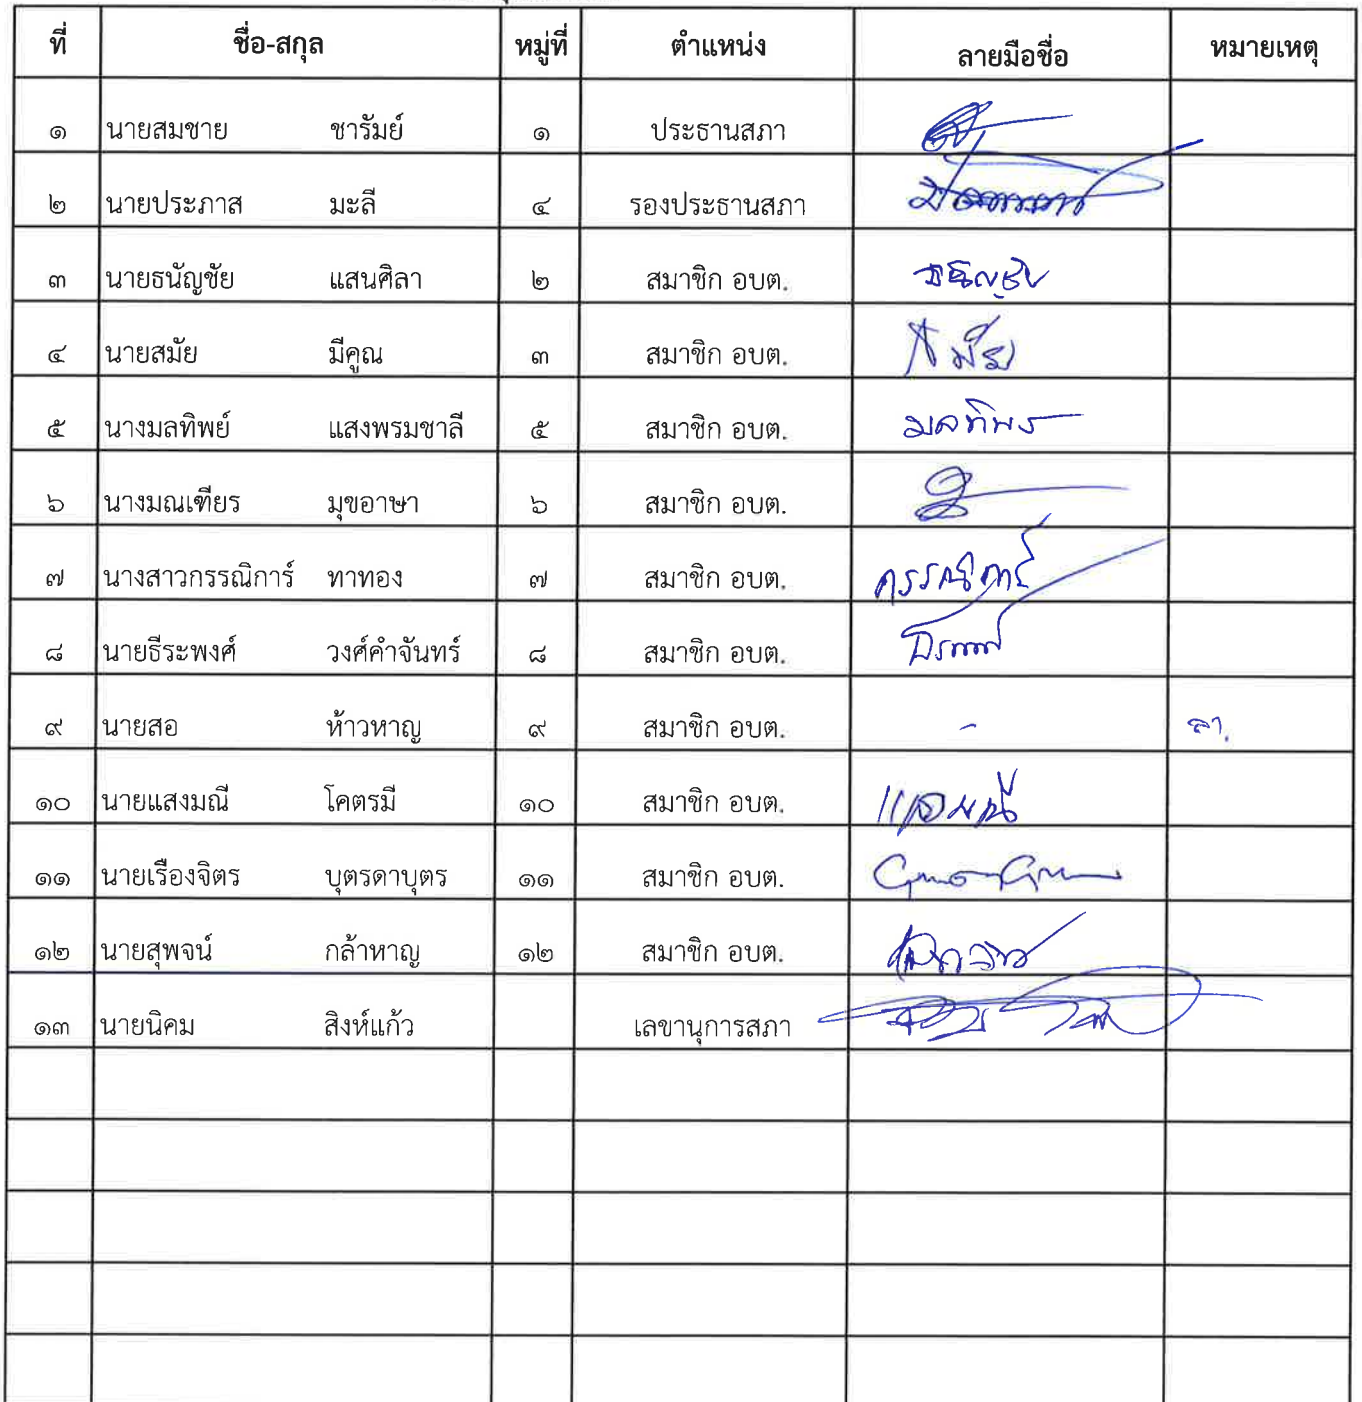 ที่ ชื่อ-สกุล หมู่ที่ ตำแหน่ง ลายมือชื่อ หมายเหตุ
๑ นายสมชาย ชารัมย์ ๑ ประธานสภา
๒ นายประภาส มะลี ๔ รองประธานสภา
๓ นายธนัญชัย แสนศิลา ๒ สมาชิก อบต. ธนัญชัย
๔ นายสมัย มีคูณ ๓ สมาชิก อบต. สมัย
๕ นางมลทิพย์ แสงพรมชาลี ๕ สมาชิก อบต. มลทิพย์
๖ นางมณเฑียร มุขอาษา ๖ สมาชิก อบต.
๗ นางสาวกรรณิการ์ ทาทอง ๗ สมาชิก อบต. กรรณิการ์
๘ นายธีระพงศ์ วงศ์คำจันทร์ ๘ สมาชิก อบต.
๙ นายสอ ห้าวหาญ ๙ สมาชิก อบต. - ลา.
๑๐ นายแสงมณี โคตรมี ๑๐ สมาชิก อบต. แสงมณี
๑๑ นายเรืองจิตร บุตรดาบุตร ๑๑ สมาชิก อบต.
๑๒ นายสุพจน์ กล้าหาญ ๑๒ สมาชิก อบต.
๑๓ นายนิคม สิงห์แก้ว เลขานุการสภา